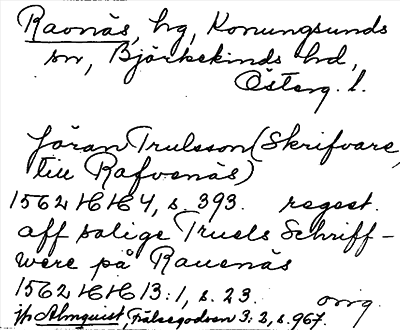 Ravnäs, hg, Konungsunds
sn, Björkekinds hd,
Österg. l.
Jöran Trulsson (Skrifvare
till Rafvenäs)
1562 HH 4, s. 393. regest.
aff salige Truels Schriff-
were på Rauenäs
1562 HH 13:1, s. 23. orig.
jfr Almquist, Frälsegodsen 3:2, s. 967.